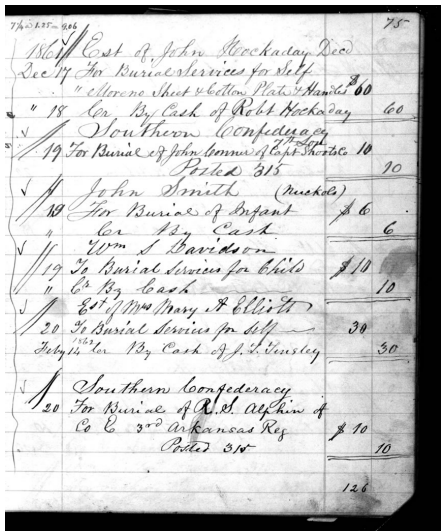 7/12 = 1.25 = 9.06
75
1861 Est of John Hockaday Decd
Dec 17 For Burial Services for Self
" Moreno Sheet & Cotton Plate & Handles $60
" 18 Cr By Cash of Robt Hockaday 60
Southern Confederacy
7th Lou
19 For Burial of John Conner of Capt Shoots Co 10
Posted 315 10
John Smith (Nuckols)
19 For Burial of Infant $6
" Cr By Cash 6
Wm S Davidson
19 To Burial Services for Child $10
" Cr By Cash 10
Est of Mrs Mary A Elliott
20 To Burial Services for Self 30
1862
Feby 14 Cr By Cash of J. T. Tinsley 30
Southern Confederacy
20 For Burial of R. S. Alphin of
Co E 3rd Arkansas Reg $10
Posted 315 10
126